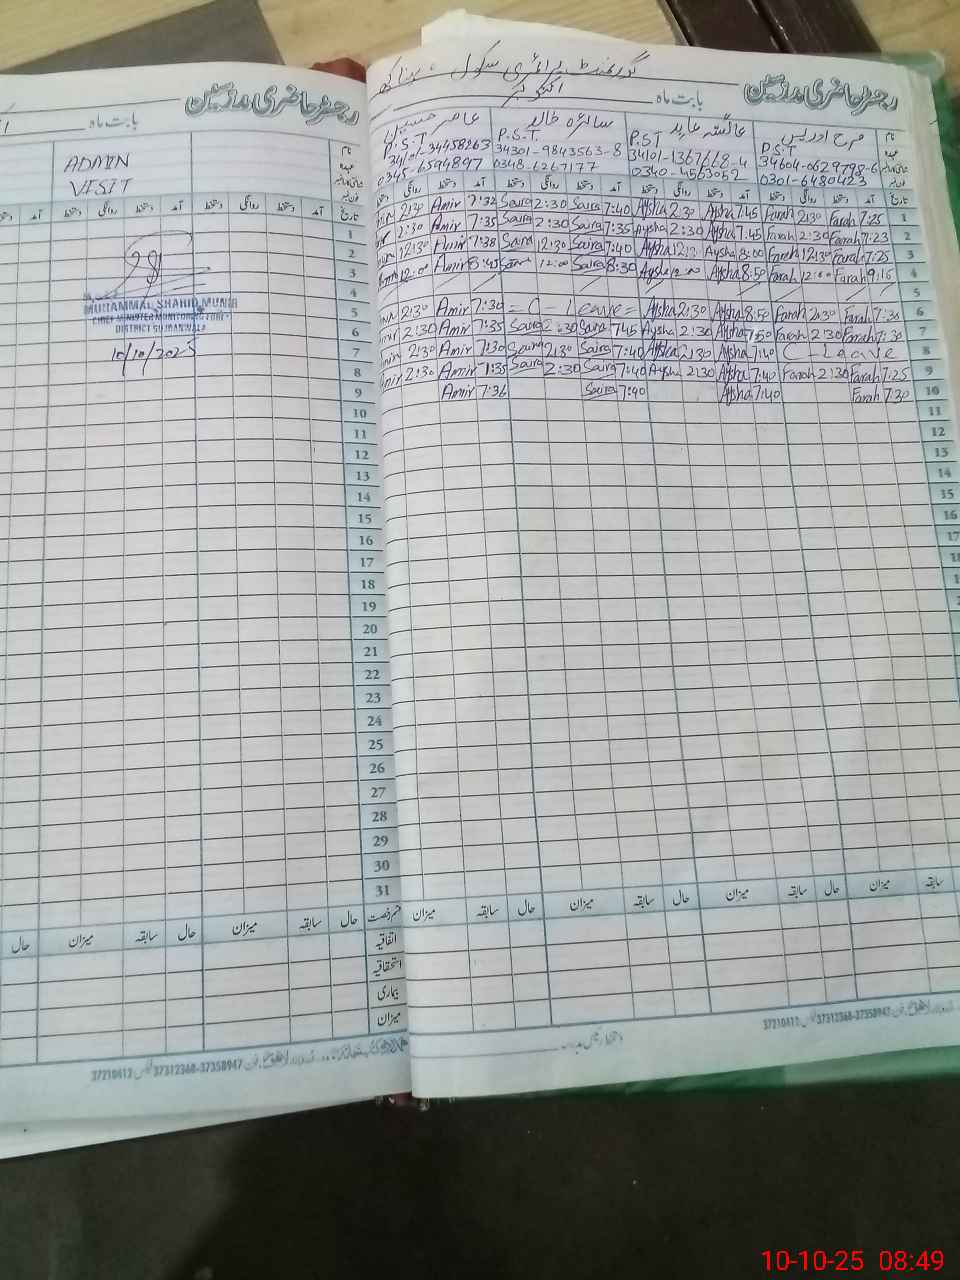 رجسٹر حاضری ملازمین
بابت ماہ
ADMIN
VISIT
نام
عہدہ
تاریخ
آمد دستخط روانگی دستخط آمد دستخط روانگی دستخط
1
2
3
4
5
6
7
8
9
10
11
12
13
14
15
16
17
18
19
20
21
22
23
24
25
26
27
28
29
30
31
MUHAMMAD SHAHID MUNIR
CHIEF MINISTER MONITORING FORCE
DISTRICT GUJRANWALA
10/10/2025
حال سابقہ میزان حال سابقہ میزان حال
اتفاقیہ
استحقاقیہ
بیماری
میزان
37210412 37312368-37358947
گورنمنٹ پرائمری سکول
رجسٹر حاضری ملازمین
بابت ماہ اکتوبر
نام فرح ادریس عائشہ عابد سائرہ خالد
P.S.T P.S.T P.S.T. P.S.T
34101-34458263 34301-9843563-8 34101-1367668-4 34604-0629798-6
0345-6594897 0348-6267177 0340-4563052 0301-6480423
آمد دستخط روانگی دستخط آمد دستخط روانگی دستخط
2:30 Amir 7:32 Saira 2:30 Saira 7:40 Aysha 2:30 Aysha 7:45 Farah 2:30 Farah 7:25 1
2:30 Amir 7:35 Saira 2:30 Saira 7:35 Aysha 2:30 Aysha 7:45 Farah 2:30 Farah 7:23 2
12:30 Amir 7:38 Saira 12:30 Saira 7:40 Aysha Aysha 8:00 Farah 12:30 Farah 7:25 3
12:00 Amir 8:45 12:00 Saira 8:30 Aysha 12:00 Aysha 8:50 Farah 12:00 Farah 9:15 4
5
2:30 Amir 7:30 = C Leave = Aysha 2:30 Aysha 8:50 Farah 2:30 Farah 7:30 6
2:30 Amir 7:35 Saira 2:30 Saira 7:45 Aysha 2:30 Aysha 7:50 Farah 2:30 Farah 7:30 7
2:30 Amir 7:30 Saira 2:30 Saira 7:40 Aysha 2:30 Aysha 7:40 C - Leave 8
Amir 2:30 Amir 7:35 Saira 2:30 Saira 7:40 Aysha 2:30 Aysha 7:40 Farah 2:30 Farah 7:25 9
Amir 7:36 Saira 7:40 Aysha 7:40 Farah 7:30 10
11
12
13
14
15
16
17
18
سابقہ میزان حال سابقہ میزان حال سابقہ میزان حال سابقہ میزان
37210412 37312368-37358947
10-10-25 08:49